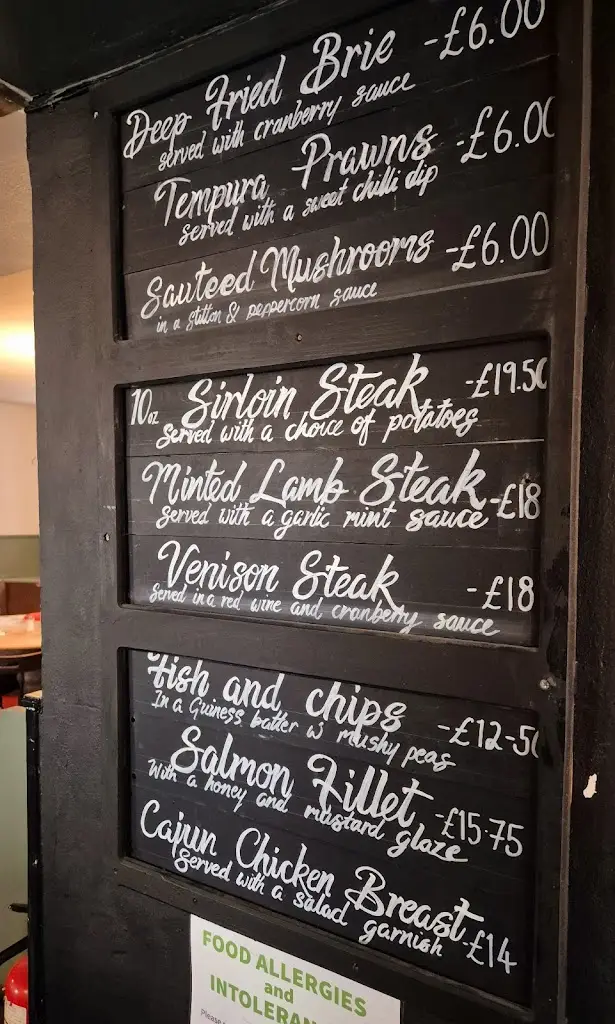 Deep Fried Brie -£6.00
served with cranberry sauce
Tempura Prawns -£6.00
served with a sweet chilli dip
Sauteed Mushrooms -£6.00
in a stilton & peppercorn sauce
10oz Sirloin Steak -£19.50
Served with a choice of potatoes
Minted Lamb Steak -£18
Served with a garlic mint sauce
Venison Steak -£18
Served in a red wine and cranberry sauce
Fish and chips -£12-50
In a Guiness batter w mushy peas
Salmon Fillet -£15.75
With a honey and mustard glaze
Cajun Chicken Breast -£14
Served with a salad garnish
FOOD ALLERGIES
and
INTOLERAN
Please